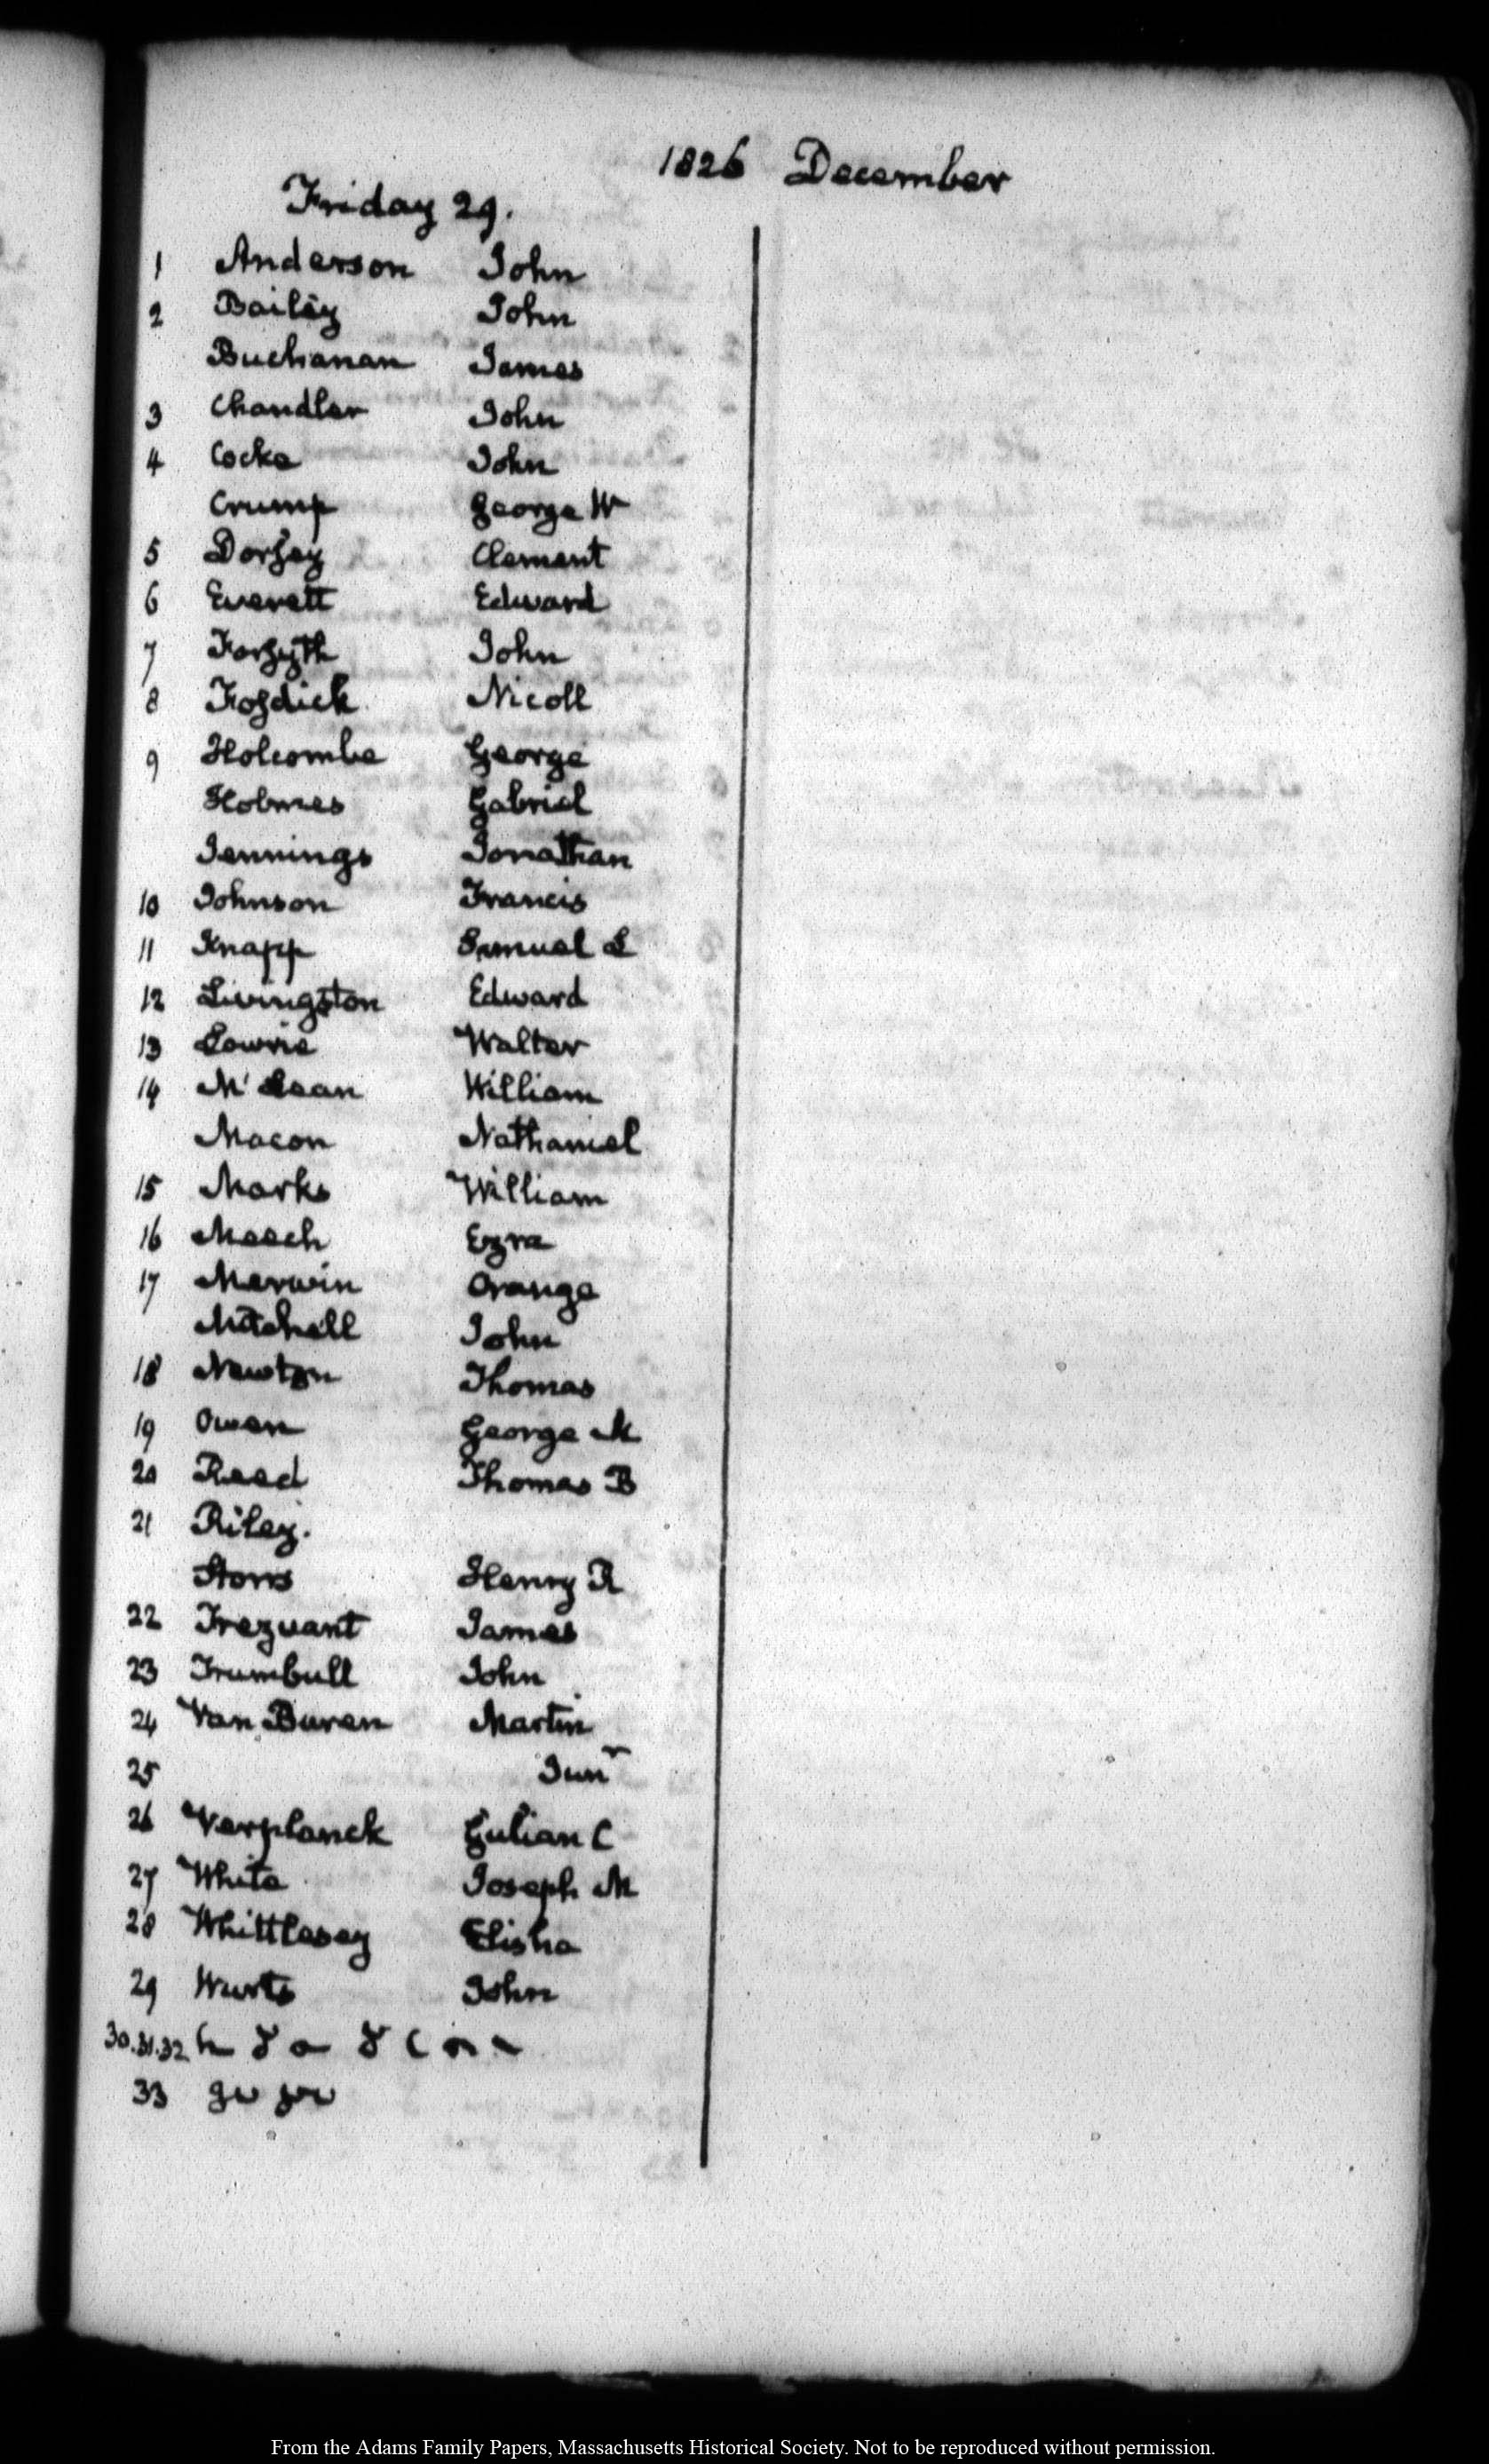 1826 December
Friday 29.
1 Anderson John
2 Bailey John
Buchanan James
3 Chandler John
4 Cocke John
Crump George W
5 Dorsey Clement
6 Everett Edward
7 Forsyth John
8 Fosdick Nicoll
9 Holcombe George
Holmes Gabriel
Jennings Jonathan
10 Johnson Francis
11 Knapp Samuel L
12 Livingston Edward
13 Lowrie Walter
14 McLean William
Macon Nathaniel
15 Marks William
16 Meech Ezra
17 Merwin Orange
Mitchell John
18 Newton Thomas
19 Owen George M
20 Reed Thomas B
21 Riley.
Storrs Henry R
22 Trezvant James
23 Trumbull John
24 Van Buren Martin
25 Junr
26 Verplanck Gulian C
27 White Joseph M
28 Whittlesey Elisha
29 Wurts John
30.31.32
33
From the Adams Family Papers, Massachusetts Historical Society. Not to be reproduced without permission.